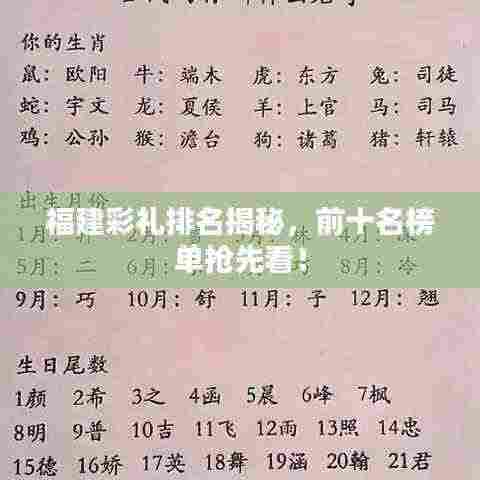 你的生肖
鼠：欧阳 牛：端木 虎：东方 兔：司徒
蛇：宇文 龙：夏侯 羊：上官 马：司马
鸡：公孙 猴：澹台 狗：诸葛 猪：轩辕
出生月份
福建彩礼排名揭秘，前十名榜
单抢先看！
9月：巧 10月：舒 11月：子 12月：翘
生日尾数
1颜 2希 3之 4函 5晨 6峰 7枫
8明 9普 10吉 11飞 12雨 13照 14忠
15德 16娇 17英 18舞 19涵 20翰 21君